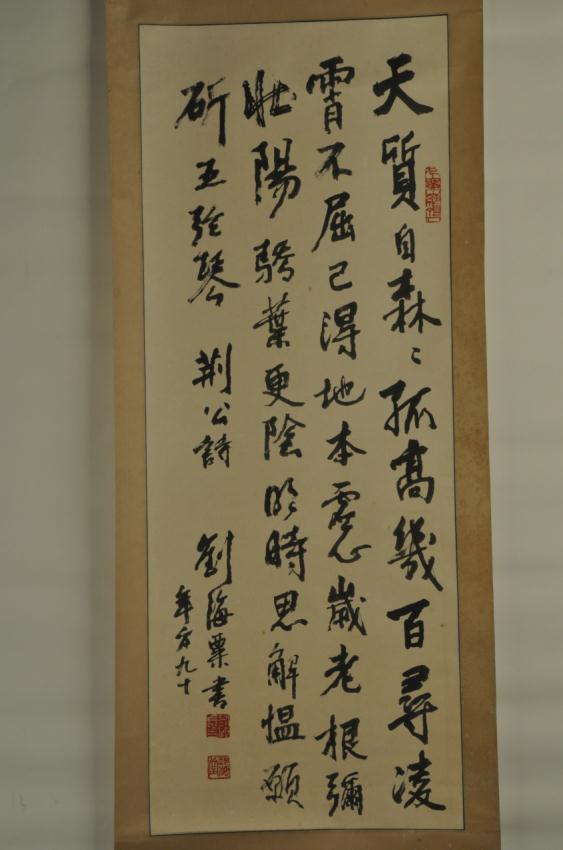 天質自森〻孤高幾百尋凌
霄不屈己得地本虛心歲老根彌
壯陽驕葉更陰明時思解慍願
斫五弦琴 荆公詩 劉海粟書
年方九十